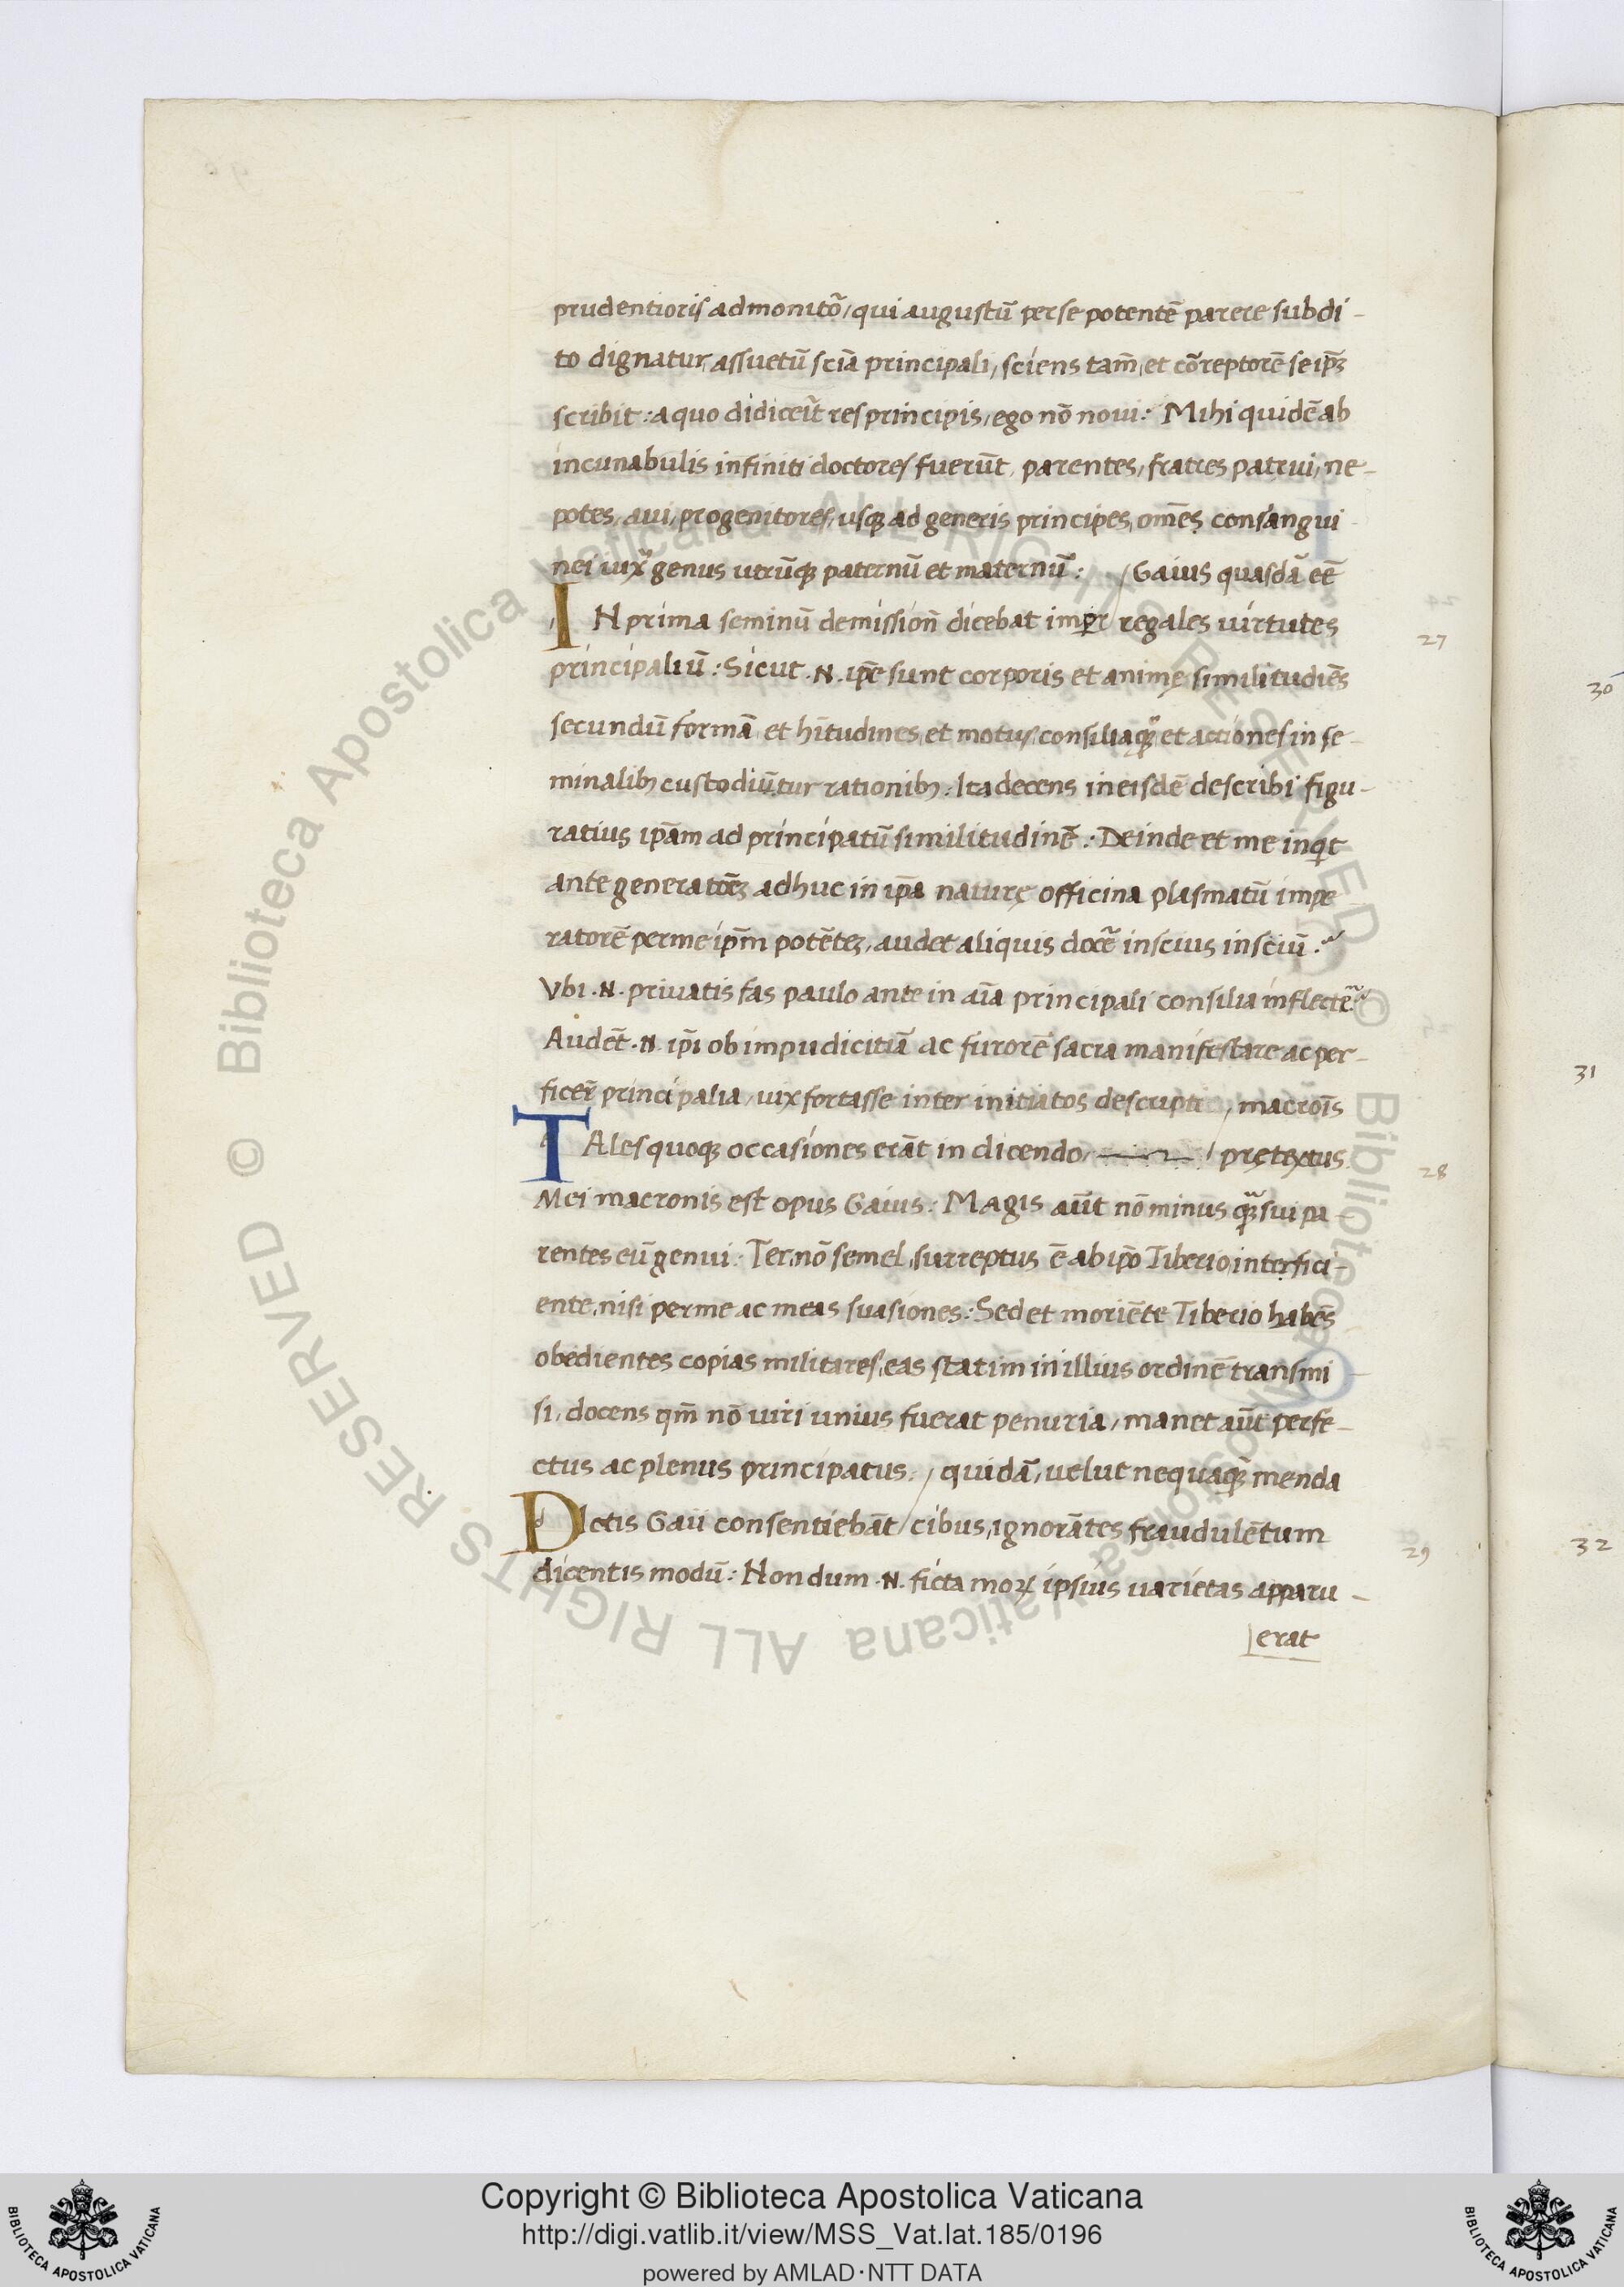 prudentioris admonitõ, qui augustũ per se potentẽ parere subdi-
to dignatur, assuetũ sciã principali, sciens tam̃, et cõreptorẽ se ip̃ȝ
scribit: a quo didicer̃it res principis, ego nõ noui: Mihi quidẽ ab
incunabulis infiniti doctores fuerũt, parentes, fratres patrui, ne-
potes, aui, progenitores, usqꝫ ad generis principes, om̃es consangui
nei iux̃ genus utrũqꝫ paternũ et maternũ: / Gaius quasdã eẽ
IN prima seminũ demission̄ dicebat imꝑr / regales uirtutes
principaliũ: Sicut .N. ip̄e sunt corporis et animę similitudiẽs
secundũ formã, et hĩtudines, et motus, consiliaqꝫ et actiones in se-
minalibꝫ custodiũtur rationibꝫ: Ita decens in eisdẽ describi figu-
ratius ip̃am ad principatũ similitudinẽ: Deinde et me inqͥt
ante generatõeȝ adhuc in ip̃a naturę officina plasmatũ impe
ratorẽ per me ip̃m potẽteȝ, audet aliquis docẽ inscius insciũ:
Vbi .N. priuatis fas paulo ante in aĩa principali consilia inflectẽ
Audẽt .N. ip̃i ob impudicitiã ac furorẽ sacra manifestare ac per-
ficer̃ principalia, uix fortasse inter initiatos descripti, / macroĩs
TAles quoqꝫ occasiones erãt in dicendo, / prętextus
Mei macronis est opus Gaius: Magis aũt nõ minus qꝫ̃ sui pa-
rentes eũ genui: Ter, nõ semel, surreptus ẽ ab ip̃o Tiberio, interfici-
ente, nisi per me ac meas suasiones: Sed et moriẽte Tiberio habẽs
obedientes copias militares, eas statim in illius ordinẽ transmi
si, docens qm̃ nõ uiri unius fuerat penuria, manet aũt perfe-
ctus ac plenus principatus: / quidã, uelut nequaqꝫ̃ menda
DIctis Gaii consentiebãt / cibus, ignorãtes fraudulẽtum
dicentis modũ: Nondum .N. ficta moꝝ ipsius uarietas apparu-
erat
27
28
29
30
31
32
© Biblioteca Apostolica Vaticana ALL RIGHTS RESERVED
© Biblioteca Apostolica Vaticana ALL RIGHTS RESERVED
BIBLIOTECA APOSTOLICA VATICANA
Copyright © Biblioteca Apostolica Vaticana
http://digi.vatlib.it/view/MSS_Vat.lat.185/0196
powered by AMLAD·NTT DATA
BIBLIOTECA APOSTOLICA VATICANA